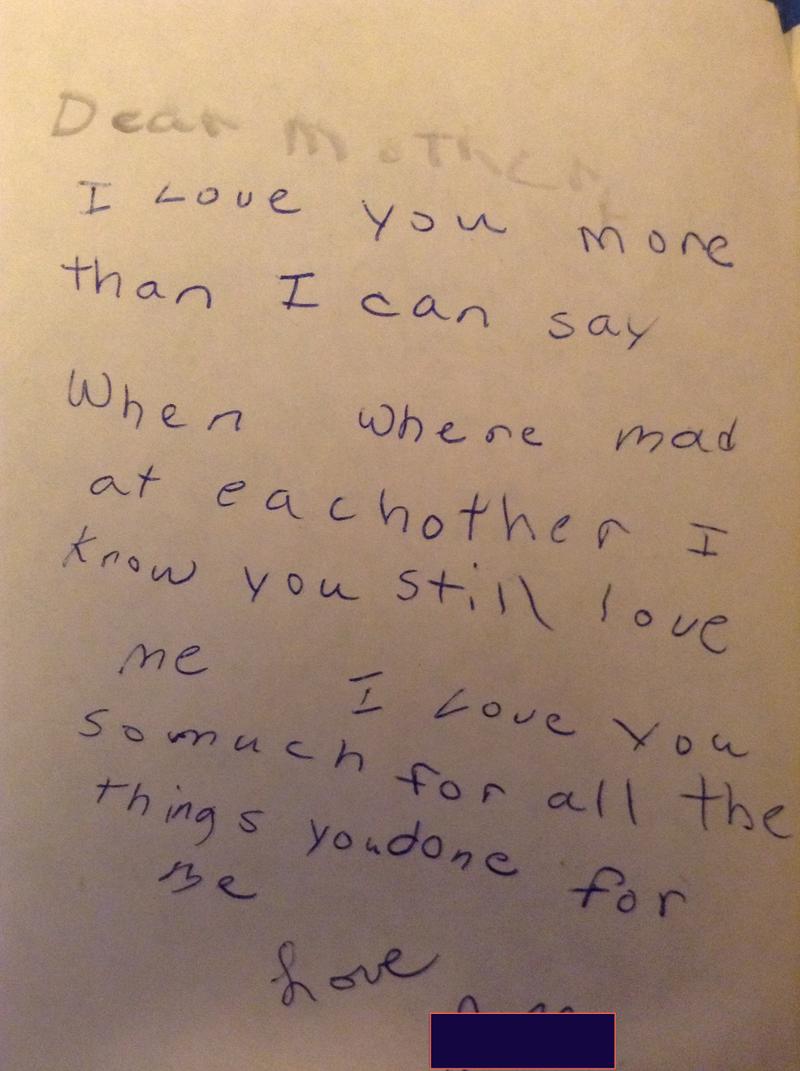 Dear Mother,
I Love you more
than I can say
When where mad
at eachother I
know you still love
me I Love you
somuch for all the
things youdone for
me
Love